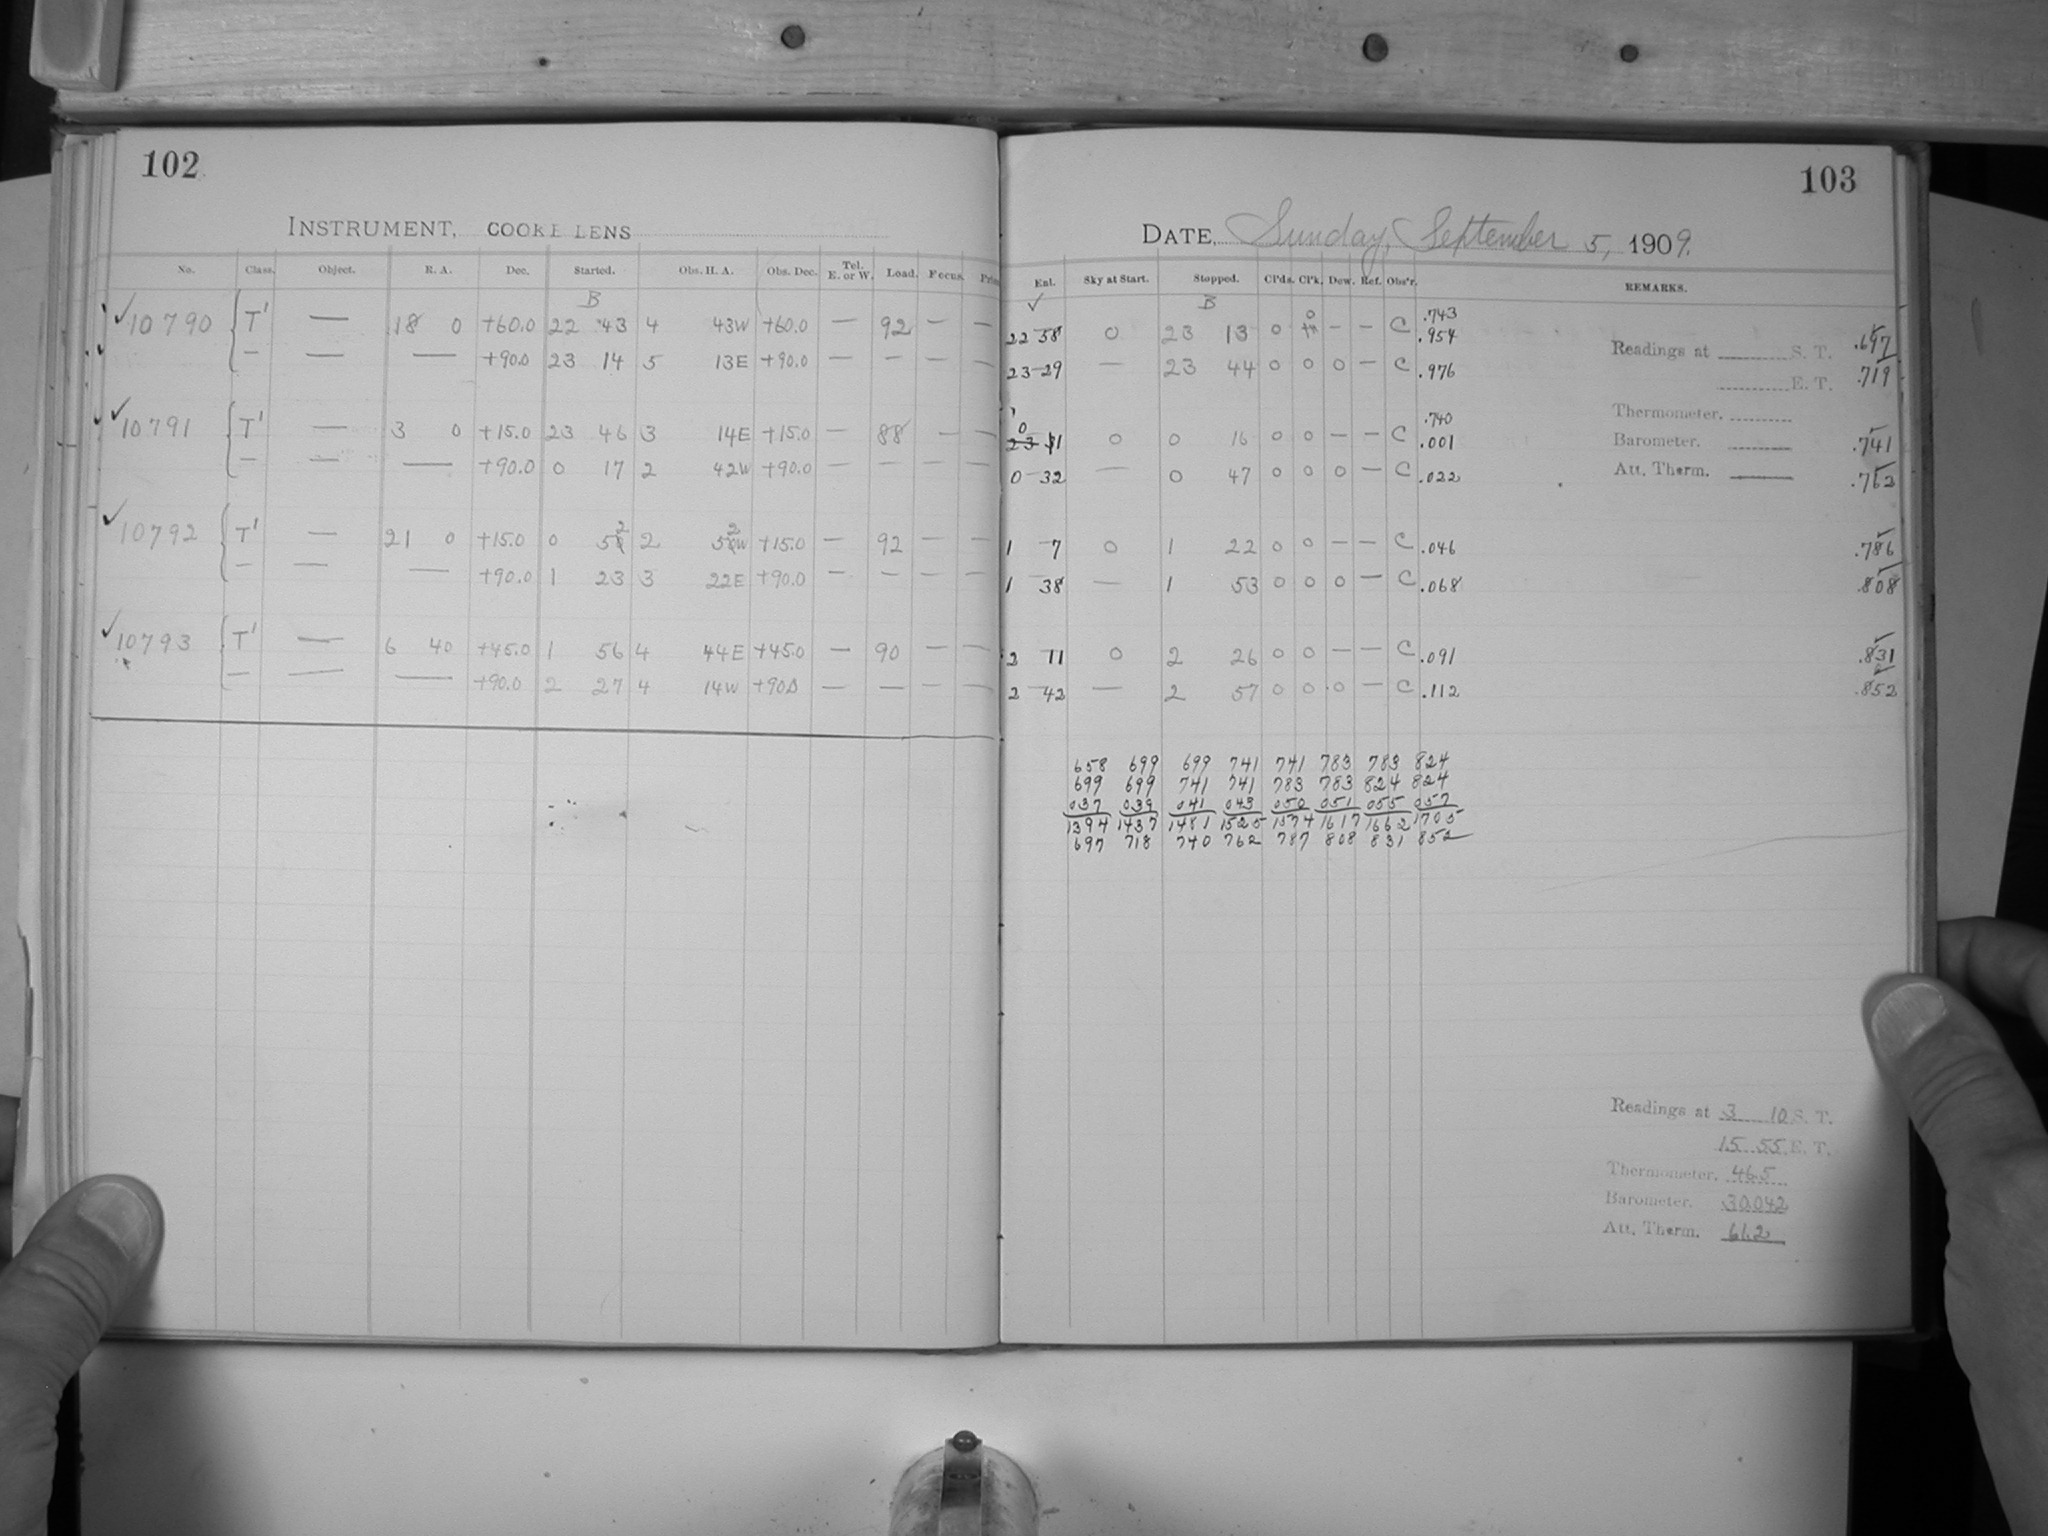 102
INSTRUMENT, COOKE LENS
No. Class. Object. R. A. Dec. Started. Obs. H. A. Obs. Dec. Tel. E. or W. Load. Focus.
B
10790 T' — 18 0 +60.0 22 43 4 43W +60.0 — 92 — —
— — — +90.0 23 14 5 13E +90.0 — — — —
10791 T' — 3 0 +15.0 23 46 3 14E +15.0 — 88 — —
— — — +90.0 0 17 2 42W +90.0 — — — —
10792 T' — 21 0 +15.0 0 52 2 52W +15.0 — 92 — —
— — — +90.0 1 23 3 22E +90.0 — — — —
10793 T' — 6 40 +45.0 1 56 4 44E +45.0 — 90 — —
— — — +90.0 2 27 4 14W +90.0 — — — —
103
DATE, Sunday, September 5, 1909.
Sky at Start. Stopped. Cl'ds. Cl'k. Dew. Ref. Obs'r. REMARKS.
B
.743
22 58 0 23 13 0 0 — — C .954 .697
23 29 — 23 44 0 0 0 — C .976 .719
.740
0 1 0 0 16 0 0 — — C .001 .741
0 32 — 0 47 0 0 0 — C .022 .762
1 7 0 1 22 0 0 — — C .046 .786
1 38 — 1 53 0 0 0 — C .068 .808
2 11 0 2 26 0 0 — — C .091 .831
2 42 — 2 57 0 0 0 — C .112 .852
Readings at S. T.
E. T.
Thermometer.
Barometer.
Att. Therm.
658 699 699 741 741 783 783 824
699 699 741 741 783 783 824 824
037 039 041 043 050 051 055 057
1394 1437 1481 1525 1574 1617 1662 1705
697 718 740 762 787 808 831 852
Readings at 3 10 S. T.
15 55 E. T.
Thermometer. 46.5
Barometer. 30.042
Att. Therm. 61.2